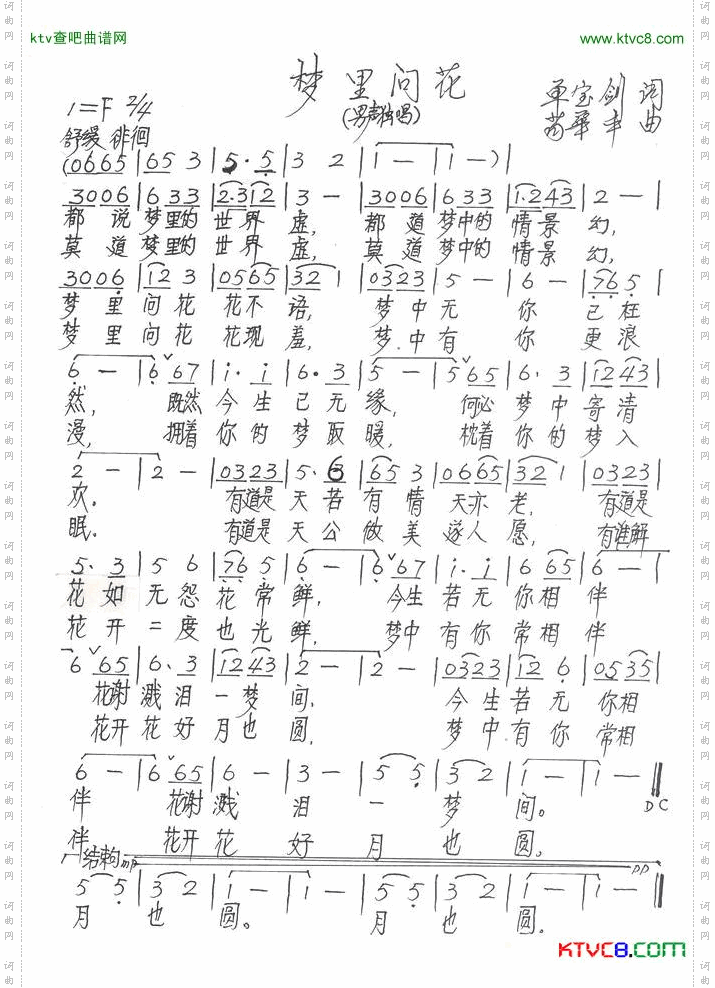 ktv查吧曲谱网
www.ktvc8.com
梦里问花
(男声独唱)
单宝剑 词
苗華丰 曲
1=F 2/4
舒缓 徘徊
(0665|653|5·5|32|1—|1—)|
3006|633|2·312|3—|3006|633|1·243|2—|
都说梦里的世界虚,都道梦中的情景幻,
莫道梦里的世界虚,莫道梦中的情景幻,
3006|123|0565|321|0323|5—|6—|765|
梦里问花花不语,梦中无你已枉
梦里问花花现羞,梦中有你更浪
6—|6ˇ67|i·i|6·3|5—|5ˇ65|6·3|1243|
然,既然今生已无缘,何必梦中寄清
漫,拥着你的梦取暖,枕着你的梦入
2—|2—|0323|5·6|653|0665|321|0323|
欢。有道是天若有情天亦老,有道是
眠。有道是天公做美遂人愿,有谁解
5·3|56|765|6—|6ˇ67|i·i|665|6—|
花如无怨花常鲜,今生若无你相伴
花开二度也光鲜,梦中有你常相伴
6ˇ65|6·3|1243|2—|2—|0323|126|0535|
花谢溅泪一梦间,今生若无你相
花开花好月也圆,梦中有你常相
6—|665|6—|3—|55|32|1—|1—‖
伴花谢溅泪一梦间。
DC
伴花开花好月也圆。
结构 mp
pp
55|32|1—|1—|55|32|1—|1—‖
月也圆。月也圆.
KTVC8.COM
词曲网